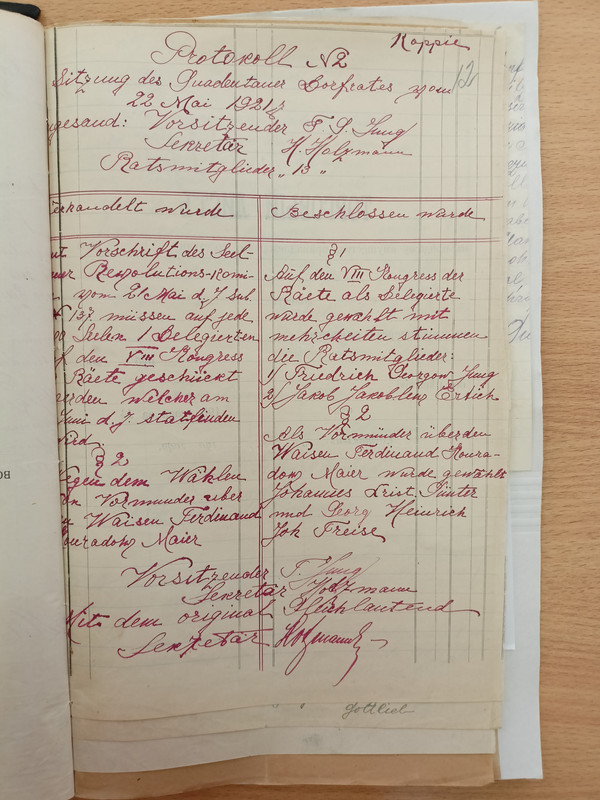 Koppie
12
Protokoll N2
Sitzung des Quadentauer Dorfrates vom
22 Mai 1921 J
gesand: Vorsitzender F. G. Jung
Sekretär H. Holzmann
Ratsmitglieder „ 13 "
erhandelt wurde
Vorschrift des Seel
Revolutions-Komi
vom 21 Mai d. J. sub.
137 müssen auf jede
Seelen 1 Delegierten
f den VIII Kongress
Räete geschückt
erden welcher am
Juni d. J. statfinden
ird.
§ 2
egen dem Wählen
on Vormunder uber
n Waisen Ferdinand
onradow Maier
Beschlossen wurde
§ 1
Auf den VIII Kongress der
Räete als Delegierte
wurde gewählt mit
mehrcheiten stimmen
die Ratsmitglieder:
1/ Friedrich Georgow Jung
2/ Jakob Jakoblew Ertich
§ 2
Als Vormünder über den
Waisen Ferdinand Konra-
dow Maier wurde gewählt
Johannes Krist. Günter
und Georg Heinrich
Joh Freise
Vorsitzender F. Jung
Sekretär Holzmann
Mit dem original gleichlautend
Sekretär Holzmann
Gottlieb